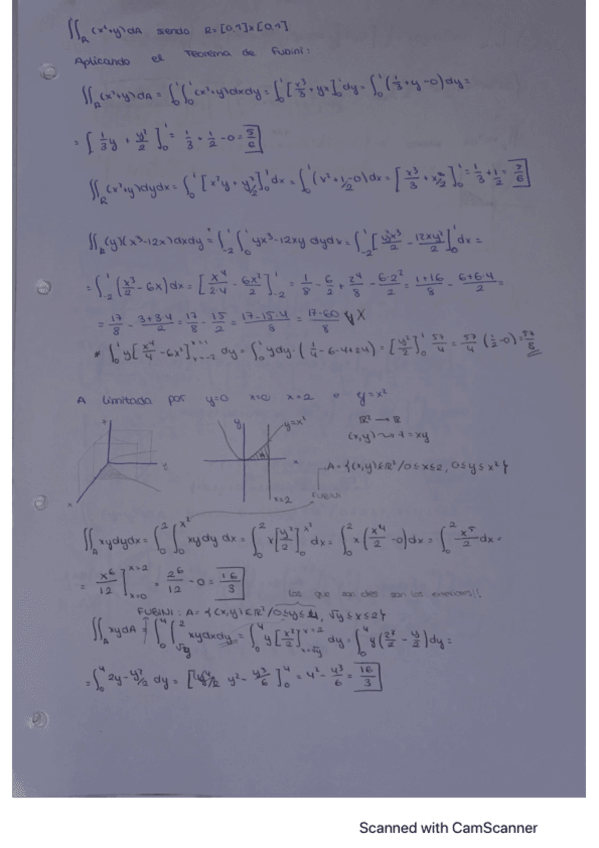 ∬_R (x²+y)dA siendo R=[0,1]×[0,1]
Aplicando el Teorema de Fubini:
∬_R (x²+y)dA = ∫₀¹∫₀¹ (x²+y)dxdy = ∫₀¹ [x³/3 + yx]₀¹ dy = ∫₀¹ (1/3 + y - 0)dy =
= [1/3 y + y²/2]₀¹ = 1/3 + 1/2 - 0 = 5/6
∬_R (x²+y)dydx = ∫₀¹ [x²y + y²/2]₀¹ dx = ∫₀¹ (x² + 1/2 - 0)dx = [x³/3 + x/2]₀¹ = 1/3 + 1/2 =
∬_R (y)(x³-12x)dxdy = ∫₋₂¹ ∫₀¹ yx³-12xy dydx = ∫₋₂¹ [y²x³/2 - 12xy²/2]₀¹ dx =
= ∫₋₂¹ (x³/2 - 6x)dx = [x⁴/2·4 - 6x²/2]₋₂¹ = 1/8 - 6/2 + 2⁴/8 - 6·2²/2 = 1+16/8 - 6+6·4/2 =
= 17/8 - 3+3·4/2 = 17/8 - 15/2 = 17-15·4/8 = 17-60/8 X
* ∫₀¹ y[x⁴/4 - 6x²] dy = ∫₀¹ ydy · (1/4 - 6 - 4+24) = [y²/2]₀¹ 57/4 = 57/4 (1/2 - 0) = 57/8
A limitada por y=0 x=0 x=2 y=x²
y y=x²
ℝ² → ℝ
(x,y) ↝ z=xy
A
x
A={(x,y)∈ℝ²/0≤x≤2, 0≤y≤x²}
x=2
FUBINI
∬_A xydydx = ∫₀² ∫₀^x² xydy dx = ∫₀² x[y²/2]₀^x² dx = ∫₀² x(x⁴/2 - 0)dx = ∫₀² x⁵/2 dx =
= x⁶/12 ]ₓ₌₀^x=2 = 2⁶/12 - 0 = 16/3
los que son ctes son los exteriores!!
FUBINI: A={(x,y)∈ℝ²/0≤y≤4, √y≤x≤2}
∬_A xydA = ∫₀⁴ ∫_√y² xydxdy = ∫₀⁴ y[x²/2]_x=√y^x=2 dy = ∫₀⁴ y(2²/2 - y/2)dy =
= ∫₀⁴ 2y - y²/2 dy = [y² - y³/6]₀⁴ = 4² - 4³/6 = 16/3
Scanned with CamScanner